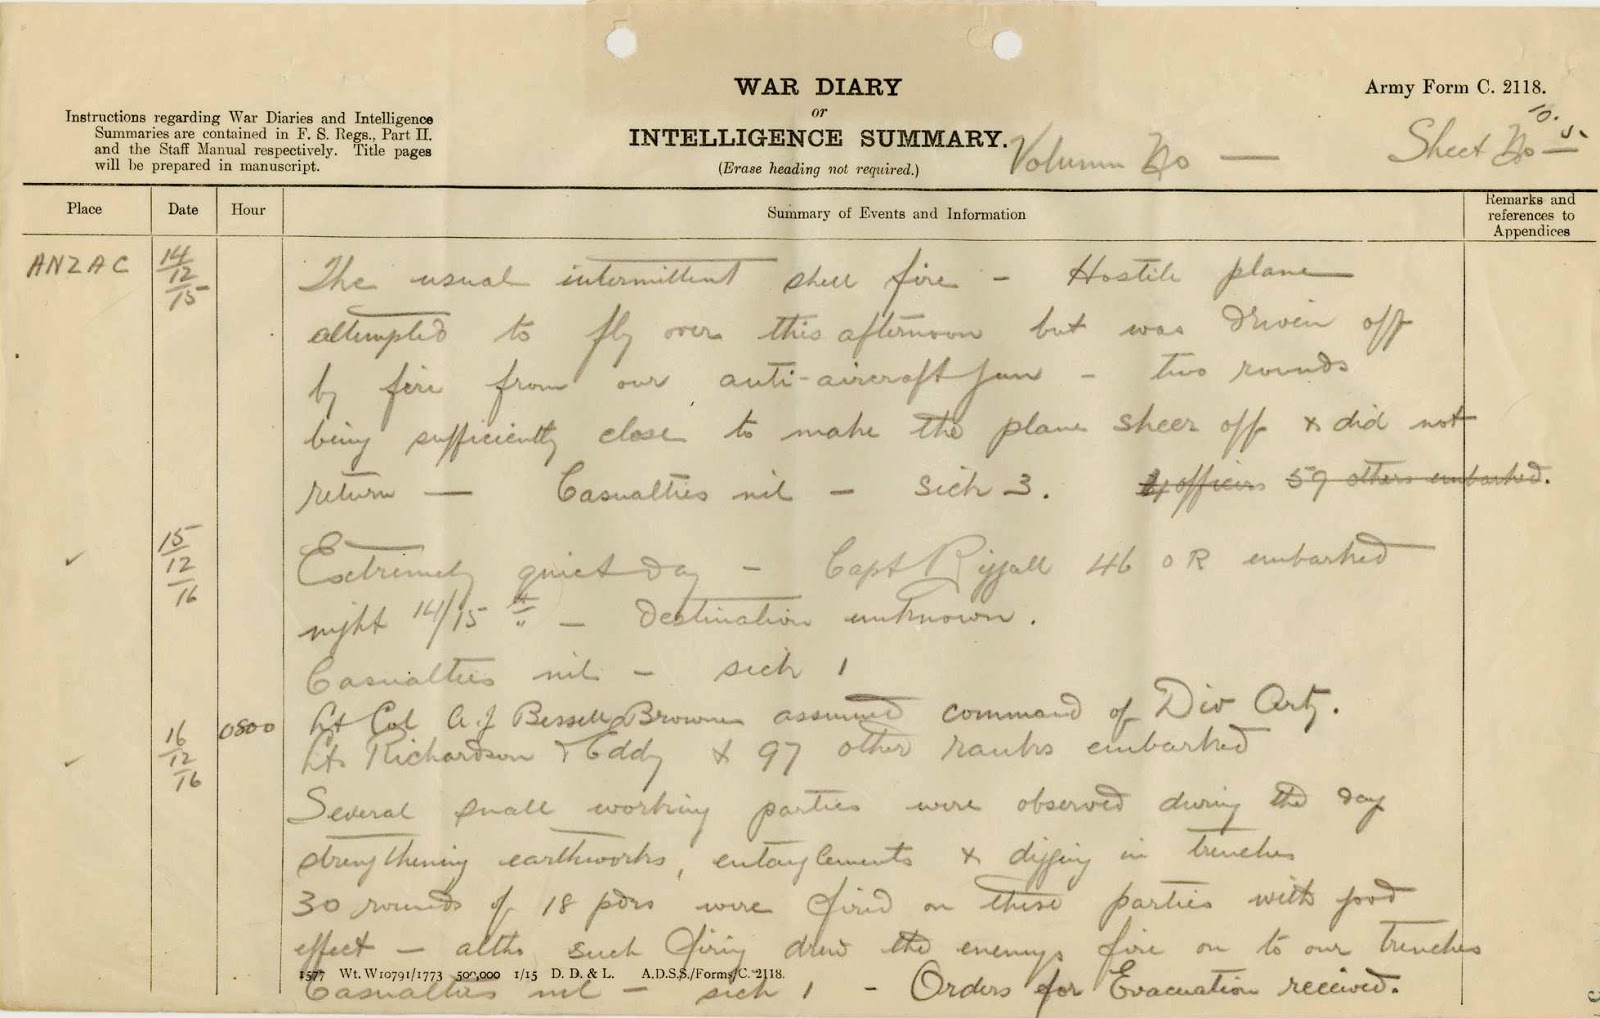 WAR DIARY
or
INTELLIGENCE SUMMARY.
(Erase heading not required.)
Army Form C. 2118.
Instructions regarding War Diaries and Intelligence
Summaries are contained in F. S. Regs., Part II.
and the Staff Manual respectively. Title pages
will be prepared in manuscript.
Volumn No —
Sheet No
Place Date Hour Summary of Events and Information Remarks and
references to
Appendices
ANZAC 14/12/15 The usual intermittent shell fire - Hostile plane
attempted to fly over this afternoon but was driven off
by fire from our anti-aircraft gun - two rounds
being sufficiently close to make the plane sheer off & did not
return — Casualties nil - sick 3. officers 59 others embarked.
15/12/16 Extremely quiet day - Capt Riggall 46 OR embarked
night 14/15th - Destination unknown.
Casualties nil - sick 1
16/12/16 0800 Lt Col A.J Bessell Browne assumed command of Div Arty.
Lts Richardson & Eddy & 97 other ranks embarked
Several small working parties were observed during the day
strengthening earthworks, entanglements & digging in trenches
30 rounds of 18 pdrs were fired on these parties with good
effect - altho such firing drew the enemys fire on to our trenches
1577 Wt. W10791/1773 500,000 1/15 D. D. & L. A.D.S.S./Forms/C. 2118.
Casualties nil - sick 1 - Orders for Evacuation received.